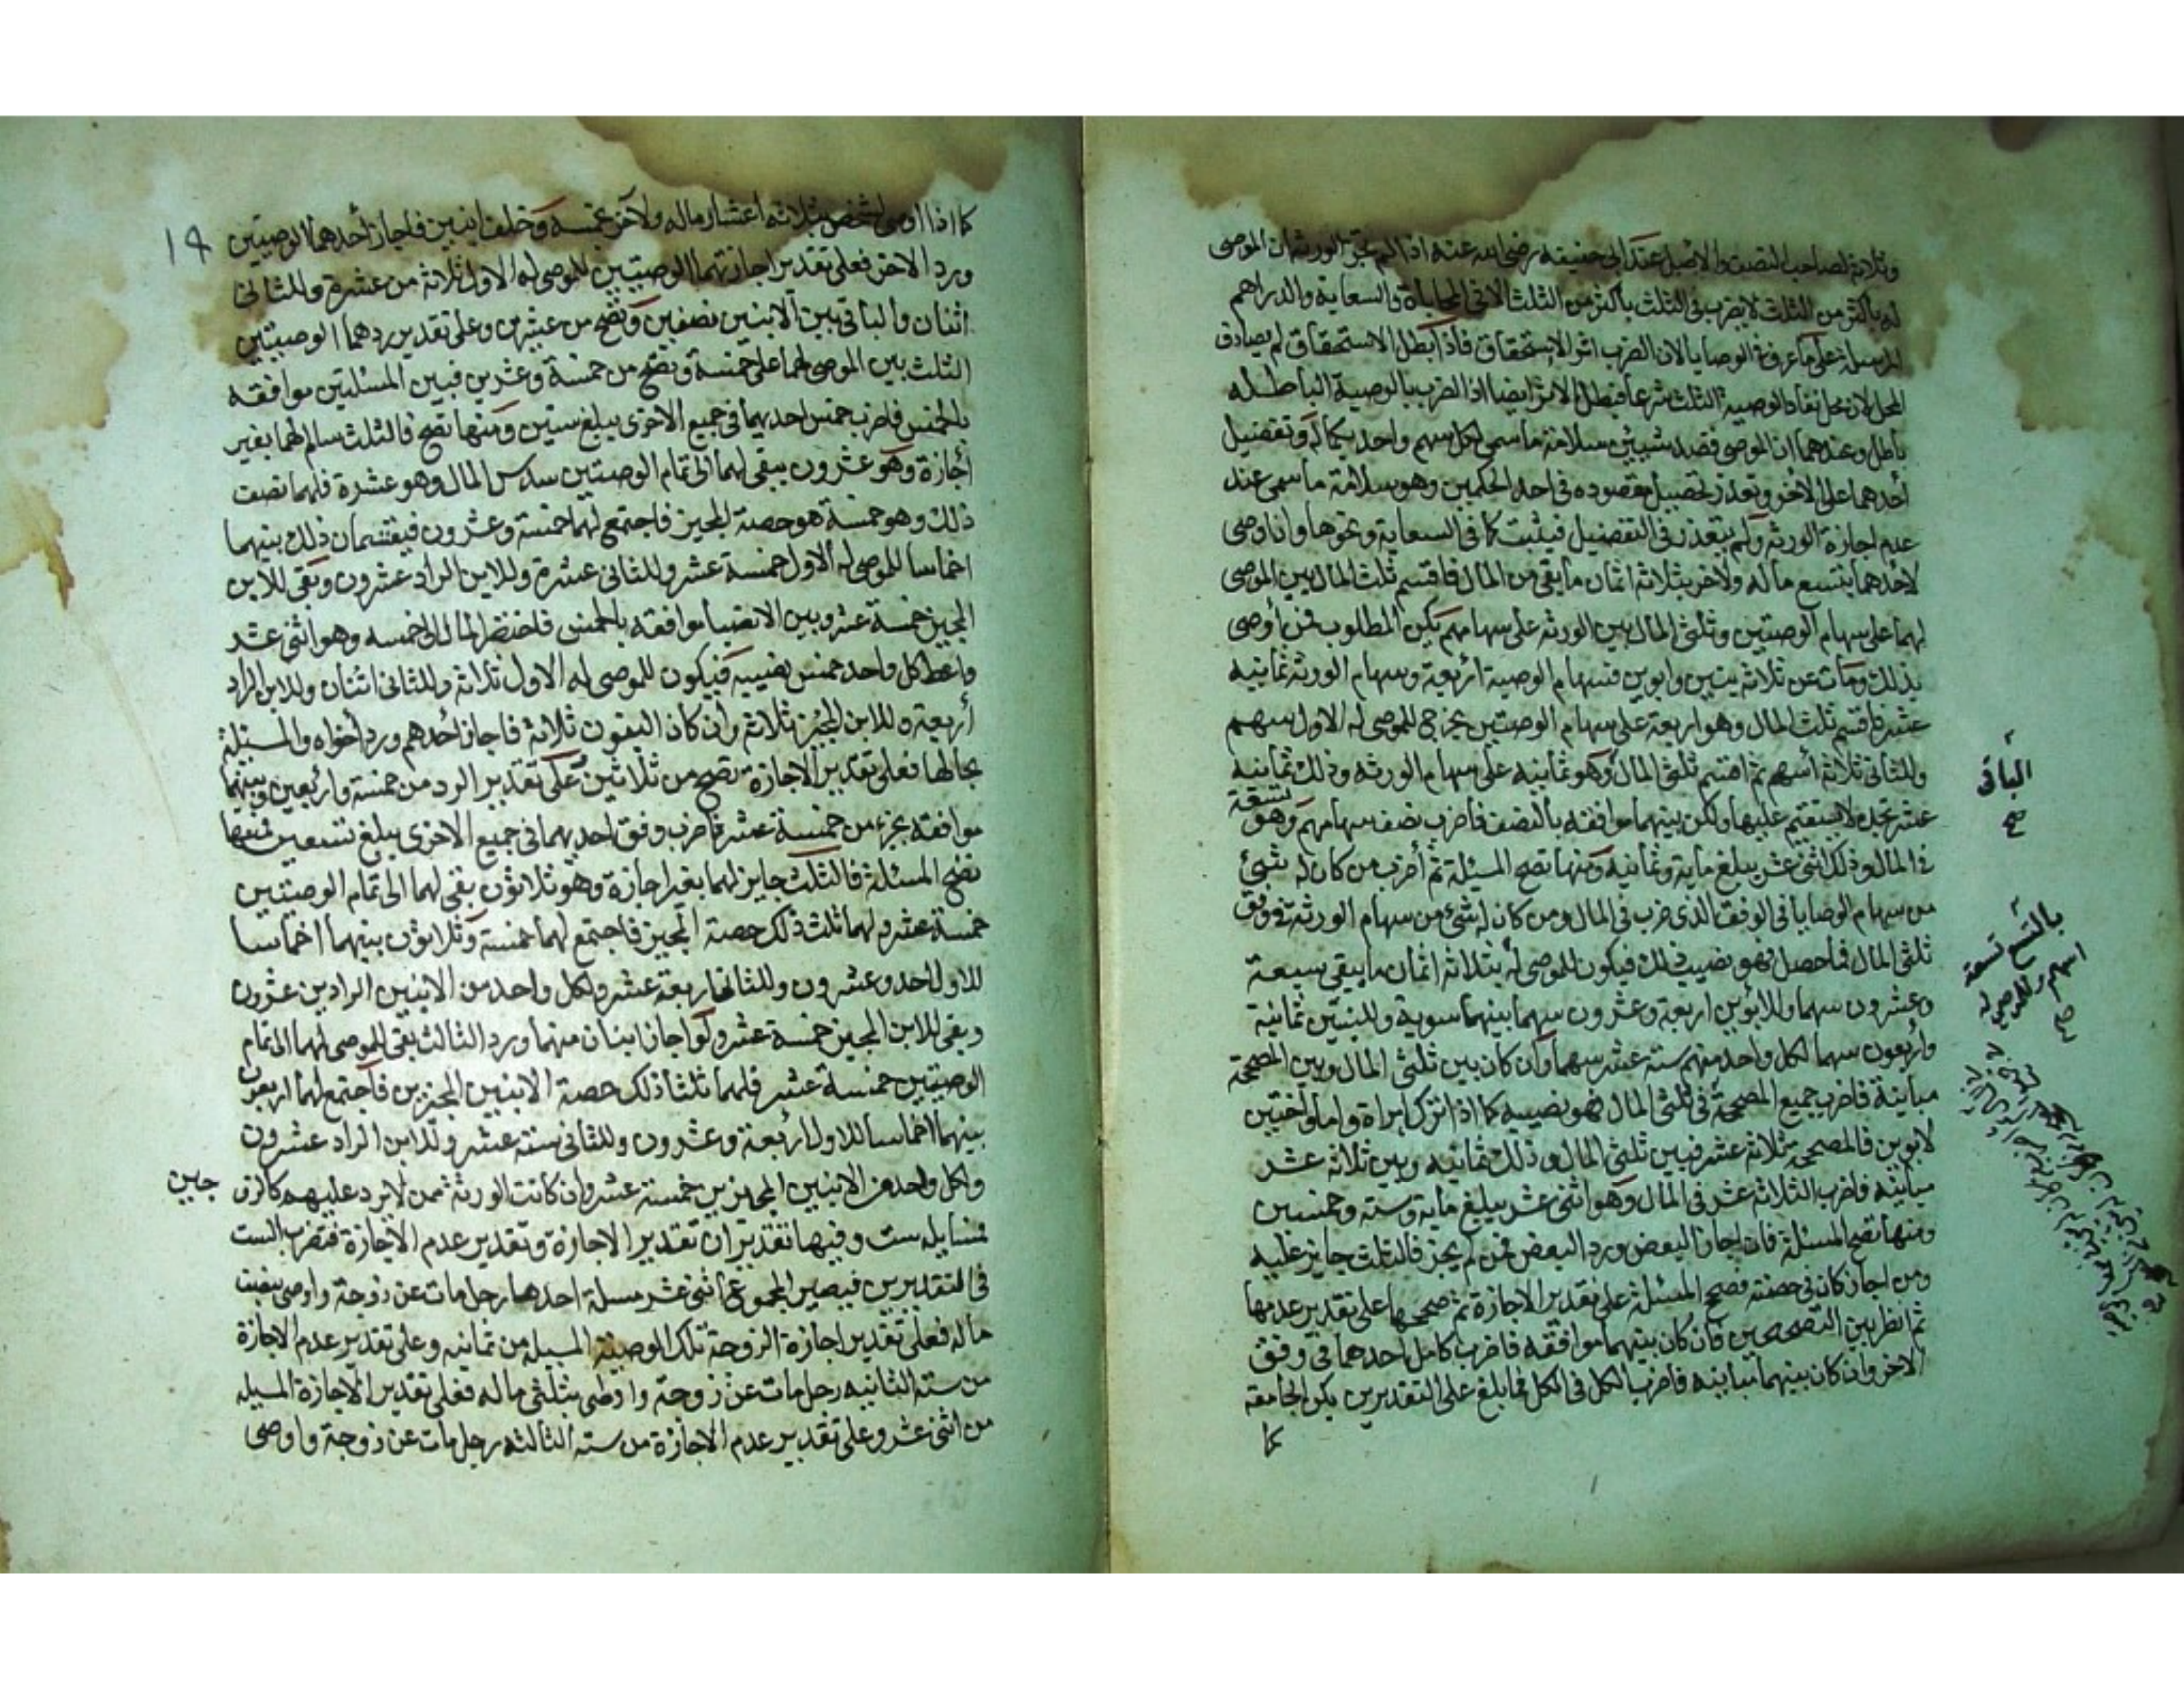 وثلاثة لصاحب النصف والاصل عند ابى حنيفه رضى الله عنه اذا لم تجز الورثه ان الموصى
له باكثر من الثلث لا يضرب فى الثلث باكثر من الثلث الا فى المحاباة والسعاية والدراهم
المرسلة على ما عرف فى الوصايا لان الضرب اثر الاستحقاق فاذا بطل الاستحقاق لم يصادف
المحل لان محل نفاذ الوصية الثلث شرعا فبطل الاثر ايضا اذ الضرب بالوصية الباطله
باطل وعندهما ان الموصى قصد شيئين سلامة ما سمى لكل سهم واحد بكماله وتفضيل
أحدهما على الاخر وتعذر تحصيل مقصوده فى احد الحكمين وهو سلامة ما سمى عند
عدم اجازة الورثه ولم يتعذر فى التفضيل فيثبت كما فى السعاية ونحوها وان اوصى
لاحدهما بتسع ماله ولاخر بثلاثة اثمان ما بقى من المال فاقسم ثلث المال بين الموصى
لهما على سهام الوصيتين وثلثى المال بين الورثه على سهامهم يكن المطلوب فمن أوصى
بذلك ومات عن ثلاثه بنين وابوين فسهام الوصية أربعة وسهام الورثة ثمانيه
عشر فاقسم ثلث المال وهو اربعة على سهام الوصيتين يخرج للموصى له الاول سهم
وللثانى ثلاثة أسهم ثم اقسم ثلثى المال وهو ثمانيه على سهام الورثه وذلك ثمانية
عشر تجده لا يستقيم عليها ولكن بينهما موافقه بالنصف فاضرب نصف سهامهم وهو تسعة
فى المال وذلك اثنى عشر يبلغ مايه وثمانيه ومنها تصح المسئلة ثم أضرب من كان له شيئ
من سهام الوصايا فى الوفق الذى ضرب فى المال ومن كان له شئ من سهام الورثة فى وفق
ثلثى المال فما حصل فهو نصيب ذلك فيكون للموصى له بثلاثة اثمان ما يبقى سبعة
وعشرون سهما وللابوين اربعة وعشرون سهما بينهما سوية وللبنين ثمانية
وأربعون سهما لكل واحد منهم ستة عشر سهما وان كان بين ثلثى المال وبين المصححة
مباينة فاضرب جميع المصححة فى ثلثى المال فهو نصيبه كما اذا ترك امراة واما واختين
لابوين فالمصححة ثلاثة عشر فبين ثلثى المال وذلك ثمانيه وبين ثلاثة عشر
مباينه فاضرب الثلاثة عشر فى المال وهو اثنى عشر يبلغ مايه وسته وخمسين
ومنها تصح المسئلة فان اجاز البعض ورد البعض فمن لم يجز فالثلث جايز عليه
ومن اجاز كان فى حصته فصحح المسئلة على تقدير الاجازة ثم صححها على تقدير عدمها
ثم انظر بين التصحيحين فان كان بينهما موافقه فاضرب كامل احدهما فى وفق
الاخر وان كان بينهما مباينه فاضرب الكل فى الكل فما بلغ على التقديرين يكن الجامعة
كما
الباقى
صح
بالتسع تسعة
اسهم وللموصى له
صح
١٩
كما اذا اوصى لشخص بثلاثة اعشار ماله ولاخر بخمسه وخلف ابنين فاجاز أحدهما الوصيتين
ورد الاخر فعلى تقدير اجازتهما الوصيتين للموصى له الاول ثلاثة من عشرة وللثانى
اثنان والباقى بين الابنين نصفين وتصح من عشرين وعلى تقدير ردهما الوصيتين
الثلث بين الموصى لهما على خمسة وتصح من خمسة وعشرين فبين المسئلتين موافقه
بالخمس فاضرب خمس احديهما فى جميع الاخرى يبلغ ستين ومنها تصح فالثلث سالم لهما بغير
أجازة وهو عشرون يبقى لهما الى تمام الوصيتين سدس المال وهو عشرة فلهما نصف
ذلك وهو خمسة هو حصة المجيز فاجتمع لهما خمسة وعشرون فيقتسمان ذلك بينهما
اخماسا للموصى له الاول خمسة عشر وللثانى عشرة وللابن الراد عشرون وبقى للابن
المجيز خمسة عشر وبين الانصبا موافقه بالخمس فاختصر المال الى خمسه وهو اثنى عشر
واعط كل واحد خمس نصيبه فيكون للموصى له الاول ثلاثة وللثانى اثنان وللابن الراد
أربعة وللابن المجيز ثلاثة وأن كان البنون ثلاثة فاجاز أحدهم ورد أخواه والمسئلة
بحالها فعلى تقدير الاجازة تصح من ثلاثين وعلى تقدير الرد من خمسة وأربعين وبينهما
موافقه بجزء من خمسة عشر فاضرب وفق احديهما فى جميع الاخرى يبلغ تسعين فمنها
تصح المسئلة فالثلث جايز لهما بغير اجازة وهو ثلاثون بقى لهما الى تمام الوصيتين
خمسة عشر ولهما ثلث ذلك حصة المجيز فاجتمع لهما خمسة وثلاثون بينهما اخماسا
للاول احد وعشرون وللثانى اربعة عشر ولكل واحد من الابنين الرادين عشرون
وبقى للابن المجيز خمسة عشر ولو اجاز ابنان منهما ورد الثالث بقى للموصى لهما الى تمام
الوصيتين خمسة عشر فلهما ثلثا ذلك حصة الابنين المجيزين فاجتمع لهما اربعون
بينهما اخماسا للاول أربعة وعشرون وللثانى ستة عشر وللابن الراد عشرون
ولكل واحد من الابنين المجيزين خمسة عشر وان كانت الورثة ممن لا يرد عليهم كالزو
جين
فمسايله ست وفيها تقديران تقدير الاجازة وتقدير عدم الاجازة فتضرب الست
فى التقديرين فيصير المجموع اثنى عشر مسلة احدها رجل مات عن زوجة واوصى بنصف
ماله فعلى تقدير اجازة الزوجة تلك الوصية المسيلة من ثمانيه وعلى تقدير عدم الاجازة
من سته الثانيه رجل مات عن زوجة واوصى بثلثى ماله فعلى تقدير الاجازة المسيله
من اثنى عشر وعلى تقدير عدم الاجازة من سته الثالثه رجل مات عن زوجة واوصى